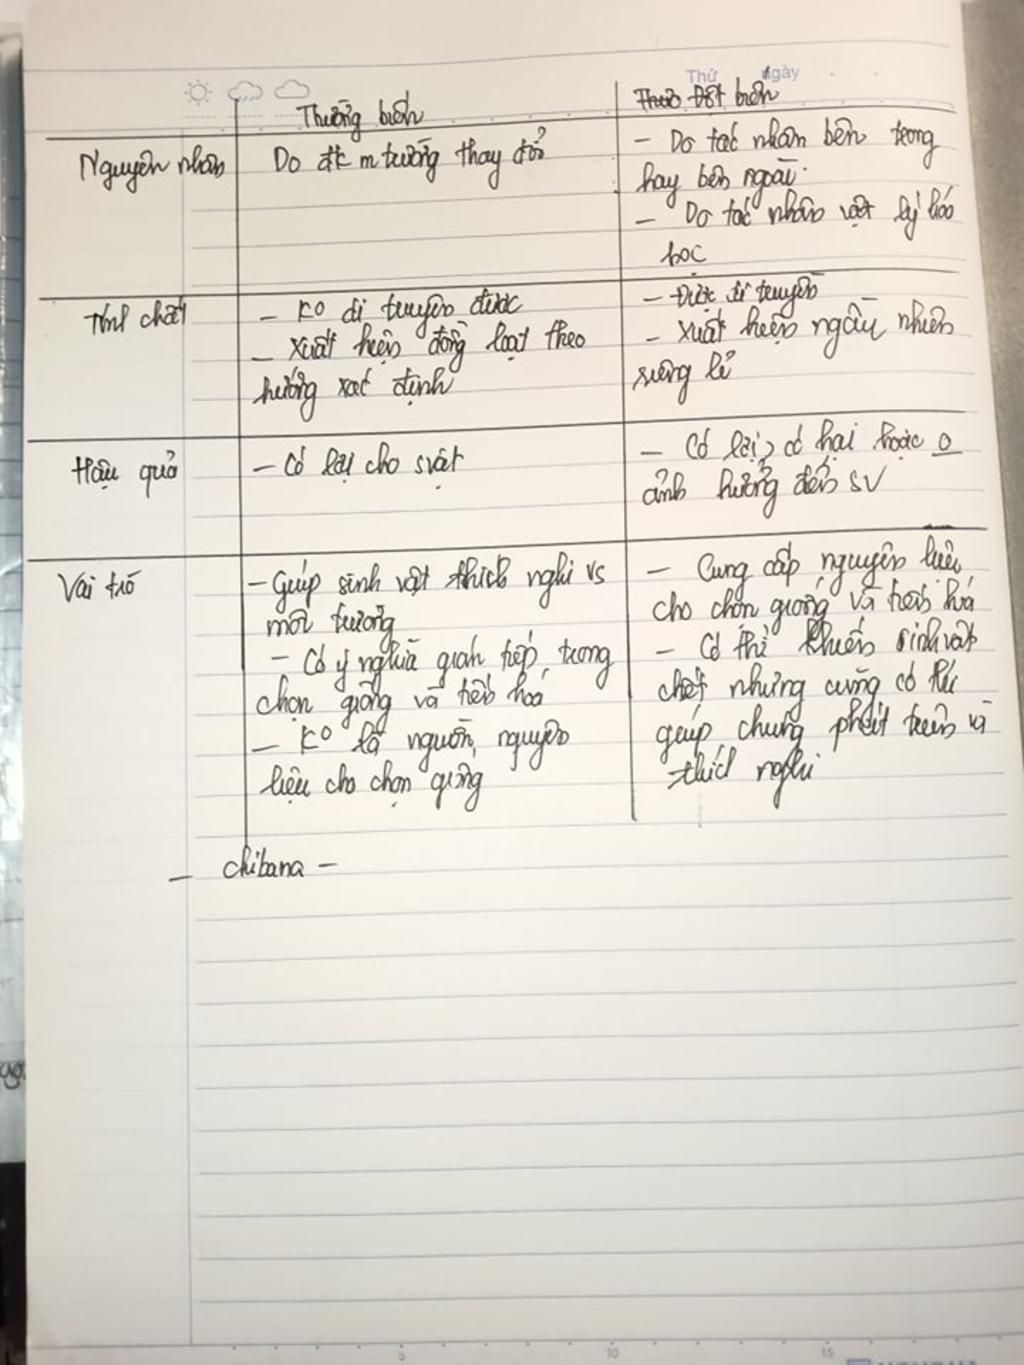 Thứ ngày
Thường biến
Đột biến
Nguyên nhân
Do đk m trường thay đổi
- Do tác nhân bên trong
hay bên ngoài.
- Do tác nhân vật lý hóa
học
Tính chất
- Ko di truyền được
- Xuất hiện đồng loạt theo
hướng xác định
- Được di truyền
- Xuất hiện ngẫu nhiên
riêng lẻ
Hậu quả
- Có lợi cho svật
- Có lợi, có hại hoặc o
ảnh hưởng đến SV
Vai trò
- Giúp sinh vật thích nghi vs
môi trường
- Có ý nghĩa gián tiếp trong
chọn giống và tiến hoá
- Ko là nguồn nguyên
liệu cho chọn giống
- Cung cấp nguyên liệu
cho chọn giống và tiến hoá
- Có thể khiến sinh vật
chết nhưng cũng có thể
giúp chúng phát triển và
thích nghi
- chibana -
5 10 15